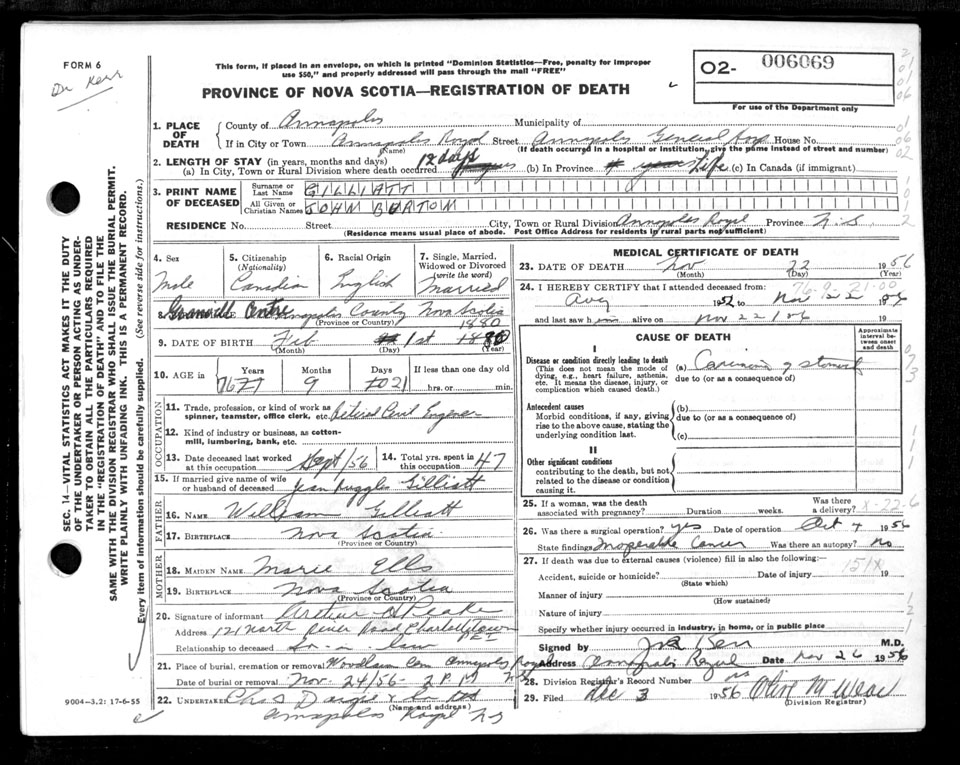 FORM 6
Dr Kerr
This form, if placed in an envelope, on which is printed "Dominion Statistics—Free, penalty for improper
use $50," and properly addressed will pass through the mail "FREE"
PROVINCE OF NOVA SCOTIA—REGISTRATION OF DEATH
O2- 006069
For use of the Department only
1. PLACE OF DEATH
County of Annapolis Municipality of
If in City or Town Annapolis Royal Street Annapolis General Hosp House No.
(Name) (If death occurred in a hospital or institution, give the name instead of street and number)
2. LENGTH OF STAY (in years, months and days)
(a) In City, Town or Rural Division where death occurred 12 days (b) In Province Life (c) In Canada (if immigrant)
3. PRINT NAME OF DECEASED
Surname or Last Name GILLIATT
All Given or Christian Names JOHN BURTON
RESIDENCE No. Street City, Town or Rural Division Annapolis Royal Province N.S.
(Residence means usual place of abode. Post Office Address for residents in rural parts not sufficient)
4. Sex Male
5. Citizenship (Nationality) Canadian
6. Racial Origin English
7. Single, Married, Widowed or Divorced (write the word) Married
8. Granville Centre Annapolis County Nova Scotia
(Province or Country)
1880
9. DATE OF BIRTH Feb 1st 1880
(Month) (Day) (Year)
10. AGE in Years Months Days If less than one day old
76 9 21 hrs. or min.
OCCUPATION
11. Trade, profession, or kind of work as spinner, teamster, office clerk, etc. Retired Civil Engineer
12. Kind of industry or business, as cotton-mill, lumbering, bank, etc.
13. Date deceased last worked at this occupation Sept/56
14. Total yrs. spent in this occupation 47
15. If married give name of wife or husband of deceased Jean Ruggles Gilliatt
FATHER
16. NAME William Gilliatt
17. BIRTHPLACE Nova Scotia
(Province or Country)
MOTHER
18. MAIDEN NAME Marie Ells
19. BIRTHPLACE Nova Scotia
(Province or Country)
20. Signature of informant Arthur Peake
Address 121 North River Road Charlottetown
P.E.I.
Relationship to deceased Son-in law
21. Place of burial, cremation or removal Woodlawn Cem Annapolis Royal
Date of burial or removal Nov. 24/56 - 2 P.M N.S
22. UNDERTAKER Chas Dargie & Sons Ltd
(Name and address)
Annapolis Royal N S
9004—3.2: 17-6-55
MEDICAL CERTIFICATE OF DEATH
23. DATE OF DEATH Nov 22 1956
(Month) (Day) (Year)
76-9-21-00
24. I HEREBY CERTIFY that I attended deceased from:
Aug 1952 to Nov 22 1956
and last saw him alive on Nov 22/56 19
CAUSE OF DEATH
Approximate interval between onset and death
I
Disease or condition directly leading to death
(This does not mean the mode of dying, e.g., heart failure, asthenia, etc. It means the disease, injury, or complication which caused death.)
(a) Carcinoma of stomach
due to (or as a consequence of)
Antecedent causes
Morbid conditions, if any, giving rise to the above cause, stating the underlying condition last.
(b)
due to (or as a consequence of)
(c)
II
Other significant conditions
contributing to the death, but not related to the disease or condition causing it.
25. If a woman, was the death associated with pregnancy? Duration weeks. Was there a delivery?
X-22-6
26. Was there a surgical operation? yes Date of operation Oct 4 1956
State findings Inoperable Cancer Was there an autopsy? No
27. If death was due to external causes (violence) fill in also the following:
151X
Accident, suicide or homicide? Date of injury 19
(State which)
Manner of injury
(How sustained)
Nature of injury
Specify whether injury occurred in industry, in home, or in public place
Signed by Kerr M.D.
Address Annapolis Royal Date Nov 26 1956
28. Division Registrar's Record Number
29. Filed Dec 3 1956
(Division Registrar)
SEC. 14—VITAL STATISTICS ACT MAKES IT THE DUTY
OF THE UNDERTAKER OR PERSON ACTING AS UNDER-
TAKER TO OBTAIN ALL THE PARTICULARS REQUIRED
IN THE "REGISTRATION OF DEATH" AND TO FILE THE
SAME WITH THE DIVISION REGISTRAR WHO SHALL ISSUE THE BURIAL PERMIT.
WRITE PLAINLY WITH UNFADING INK. THIS IS A PERMANENT RECORD.
Every item of information should be carefully supplied. (See reverse side for instructions.)